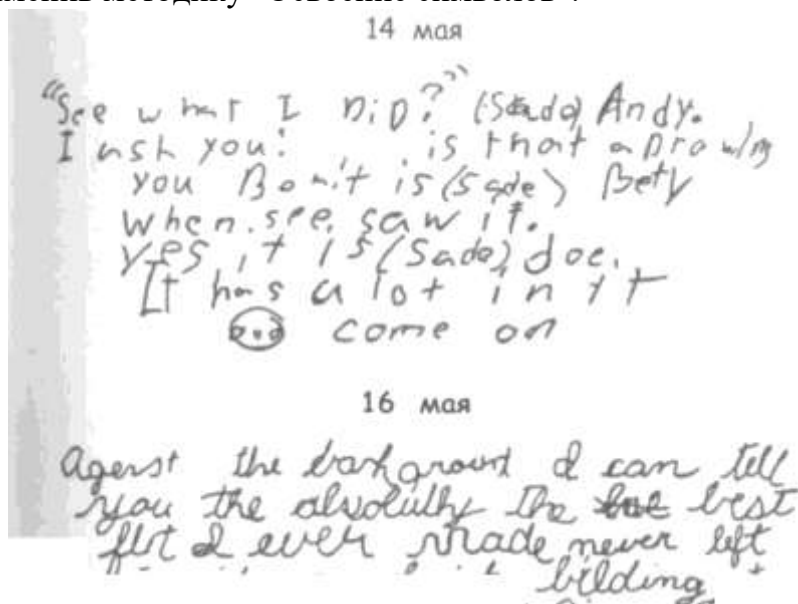 14 мая
"See what I DiD?" (Sade) Andy.
I ask you! is that a Drawing
you Bon't is (sade) Bety
when.see.saw it.
yes it is (Sade) Joe.
It has a lot in it
come on
16 мая
agenst the background I can tell
you the absolutly the best
I ever made never left
bilding